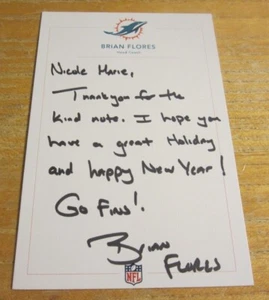 BRIAN FLORES
Head Coach
Nicole Marie,
Thankyou for the
kind note. I hope you
have a great Holiday
and happy New Year!
Go Fins!
Brian
Flores
NFL